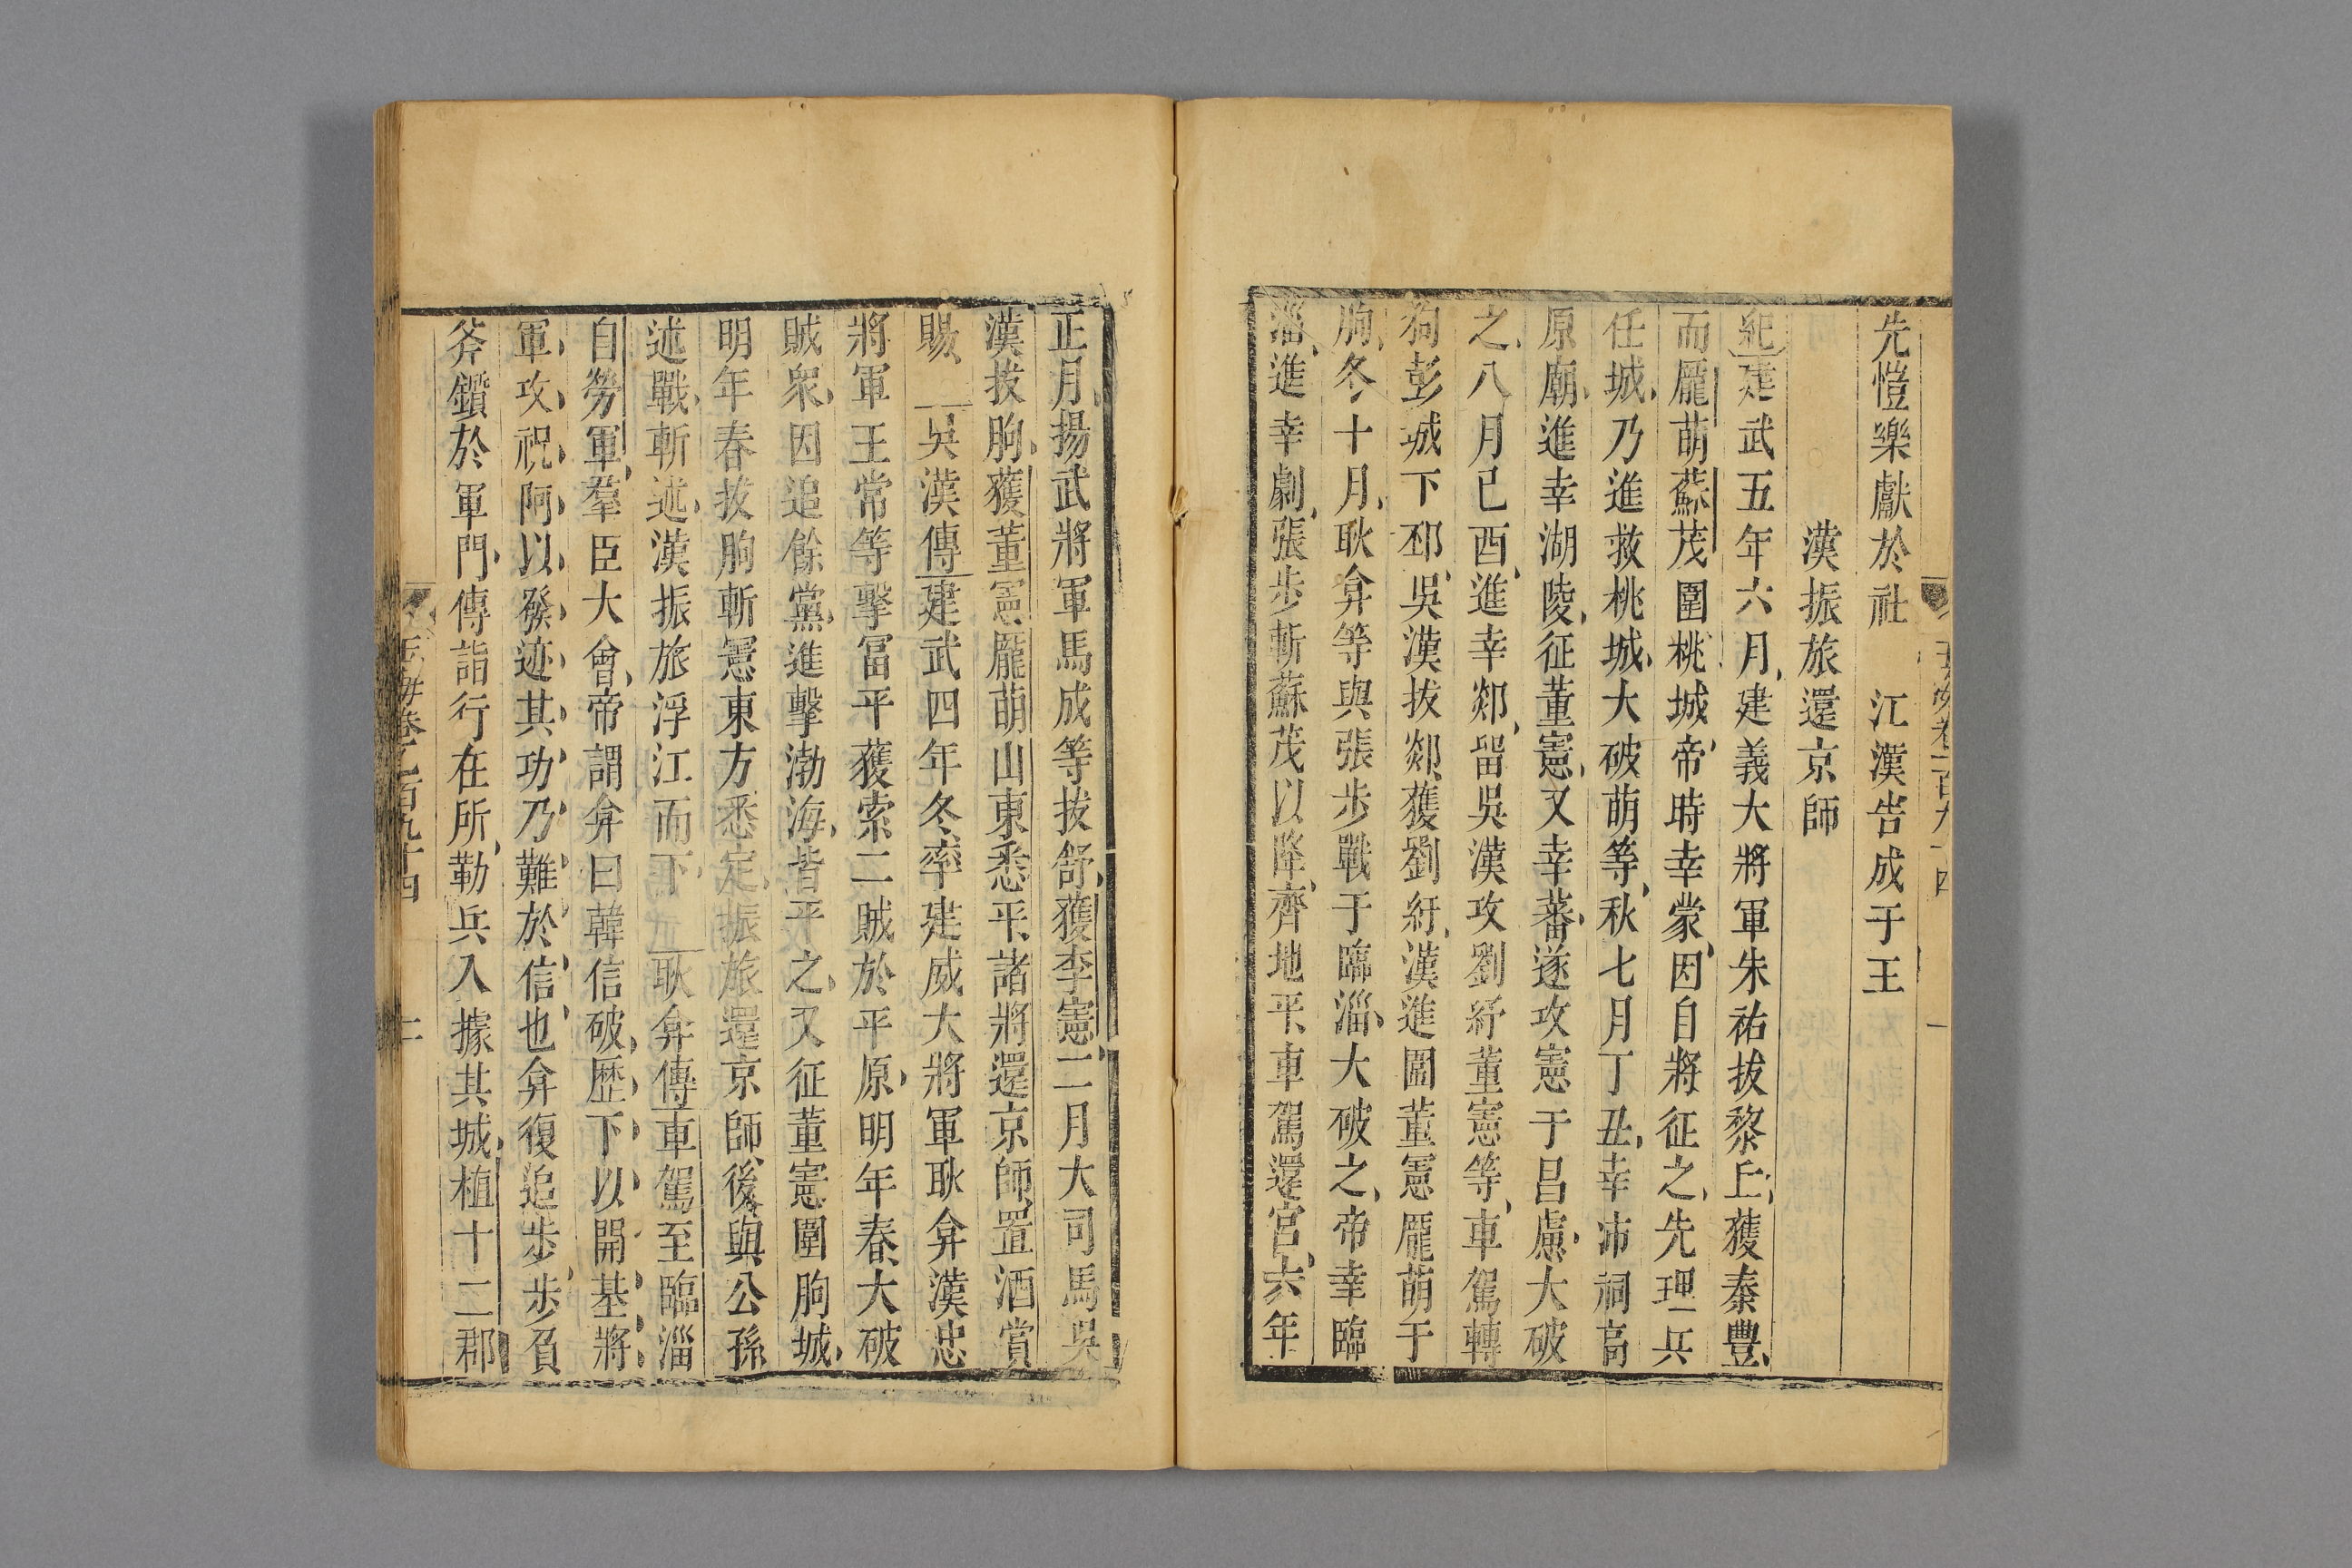 先愷樂獻於社　江漢告成于王
漢振旅還京師
紀建武五年六月建義大將軍朱祐拔黎丘獲秦豐
而龐萌蘇茂圍桃城帝時幸蒙因自將征之先理兵
任城乃進救桃城大破萌等秋七月丁丑幸沛祠高
原廟進幸湖陵征董憲又幸蕃遂攻憲于昌慮大破
之八月己酉進幸郯留吳漢攻劉紆董憲等車駕轉
狥彭城下邳吳漢拔郯獲劉紆漢進圍董憲龐萌于
朐冬十月耿弇等與張步戰于臨淄大破之帝幸臨
淄進幸劇張步斬蘇茂以降齊地平車駕還宮六年
正月揚武將軍馬成等拔舒獲李憲二月大司馬吳
漢拔朐獲董憲龐萌山東悉平諸將還京師置酒賞
賜　吳漢傳建武四年冬率建威大將軍耿弇漢忠
將軍王常等擊冨平獲索二賊於平原明年春大破
賊衆因追餘黨進擊渤海皆平之又征董憲圍朐城
明年春拔朐斬憲東方悉定振旅還京師後與公孫
述戰斬述漢振旅浮江而下　耿弇傳車駕至臨淄
自勞軍羣臣大會帝謂弇曰韓信破歷下以開基將
軍攻祝阿以發迹其功乃難於信也弇復追步步負
斧鑕於軍門傳詣行在所勒兵入據其城植十二郡
玉海卷一百九十四